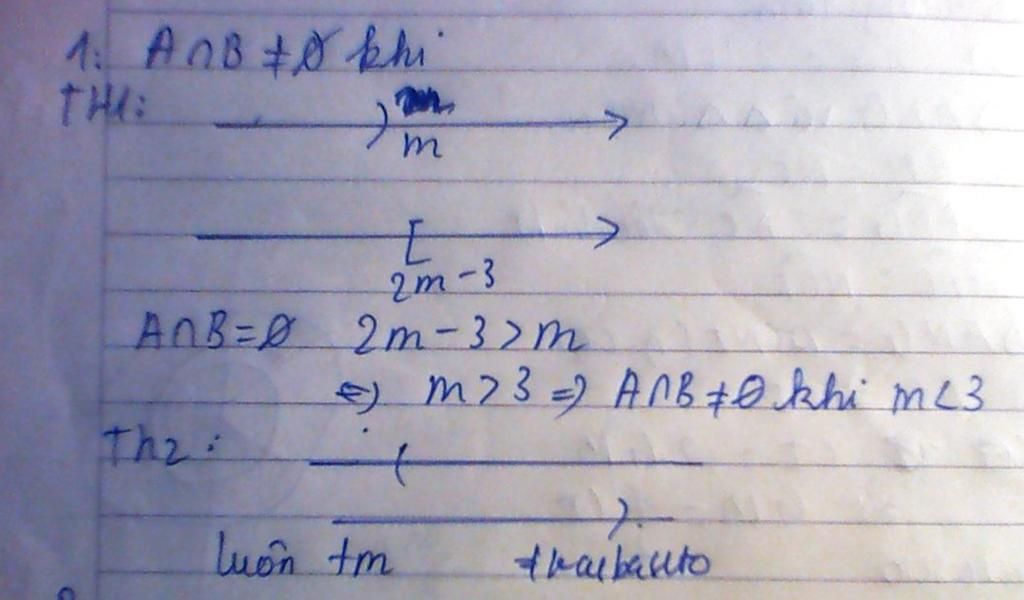 1: A∩B ≠ ∅ khi
TH1:
) m
[
2m-3
A∩B=∅ 2m-3>m
⇔ m>3 ⇒ A∩B≠∅ khi m<3
Th2:
(
)
luôn tm